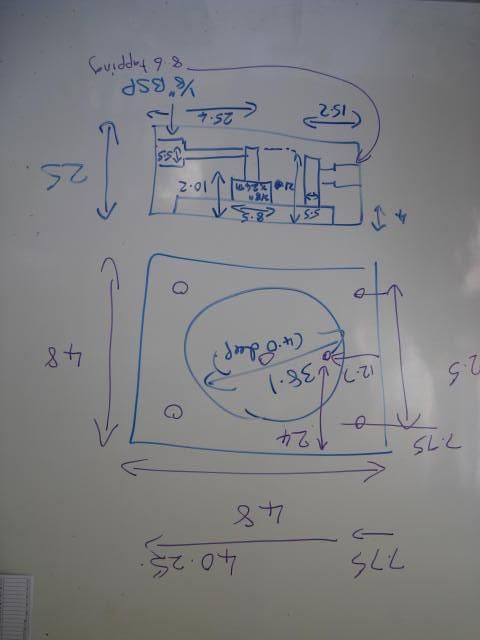 7.75
40.25
48
7.75
24
38.1
12.7
(4.0 deep)
48
4
5.5
8.5
10.2
5.5
25
15.2
25.4
1/8" BSP
8.6 tapping